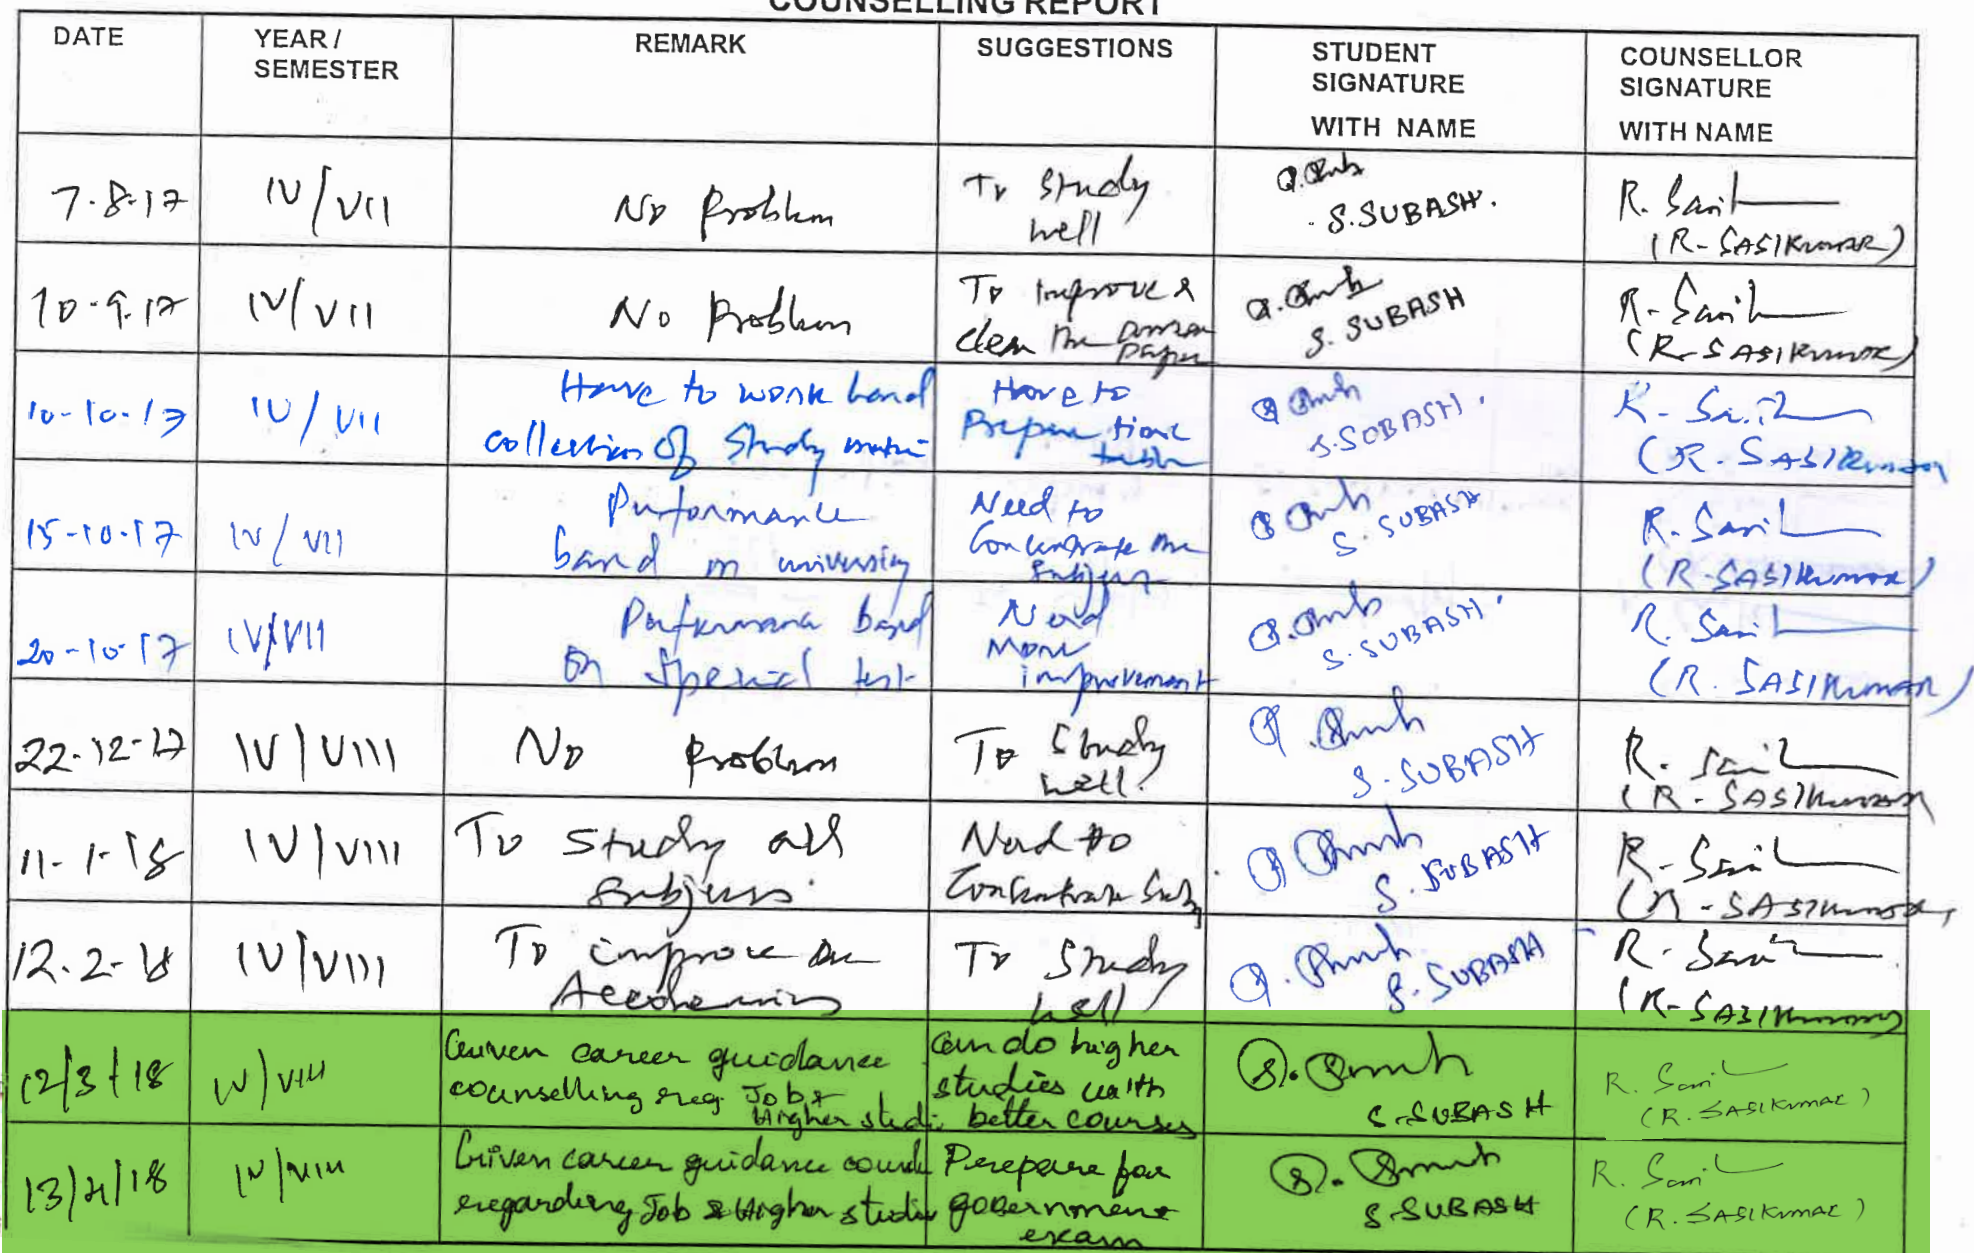 COUNSELLING REPORT
DATE
YEAR /
SEMESTER
REMARK
SUGGESTIONS
STUDENT
SIGNATURE
WITH NAME
COUNSELLOR
SIGNATURE
WITH NAME
7.8.17
IV/VII
No Problem
To Study
well
S.SUBASH.
R. Sasi
(R-SASIKumAR)
10-9.17
IV/VII
No Problem
To Improve &
clear the
paper
S. SUBASH
R-Sasi
(R-SASIKumar)
10-10-17
IV/VII
Have to work hard
collection of Study
Have to
Prepare time
table
S.SUBASH.
R-Sasi
(R.SASIKumar
15-10-17
IV/VII
Performance
based on university
Need to
Concentrate the
Subject
S. SUBASH
R.Sasi
(R-SASIKumar)
20-10-17
IV/VII
Performance based
on Special test
Need
More
improvement
S.SUBASH.
R. Sasi
(R. SASIKumAR)
22-12-17
IV|VIII
No Problem
To Study
well.
S.SUBASH
R. Sasi
(R-SASIKumar
11-1-18
IV|VIII
To Study all
Subjects.
Need to
Concentrate Sub
S.SUBASH
R-Sasi
(R-SASIKumar,
12.2-18
IV|VIII
To improve the
Academics
To Study
well
S.SUBASH
R-Sasi
(R-SASIKumar)
12/3/18
IV/VIII
Given career guidance
counselling reg. Job &
Higher studi
can do higher
studies with
better courses
S.SUBASH
R. Sasi
(R.SASIKumar)
13/4/18
IV/VIII
Given career guidance couns
regarding Job & Higher studie
Prepare for
government
exam
S.SUBASH
R. Sasi
(R.SASIKumar)